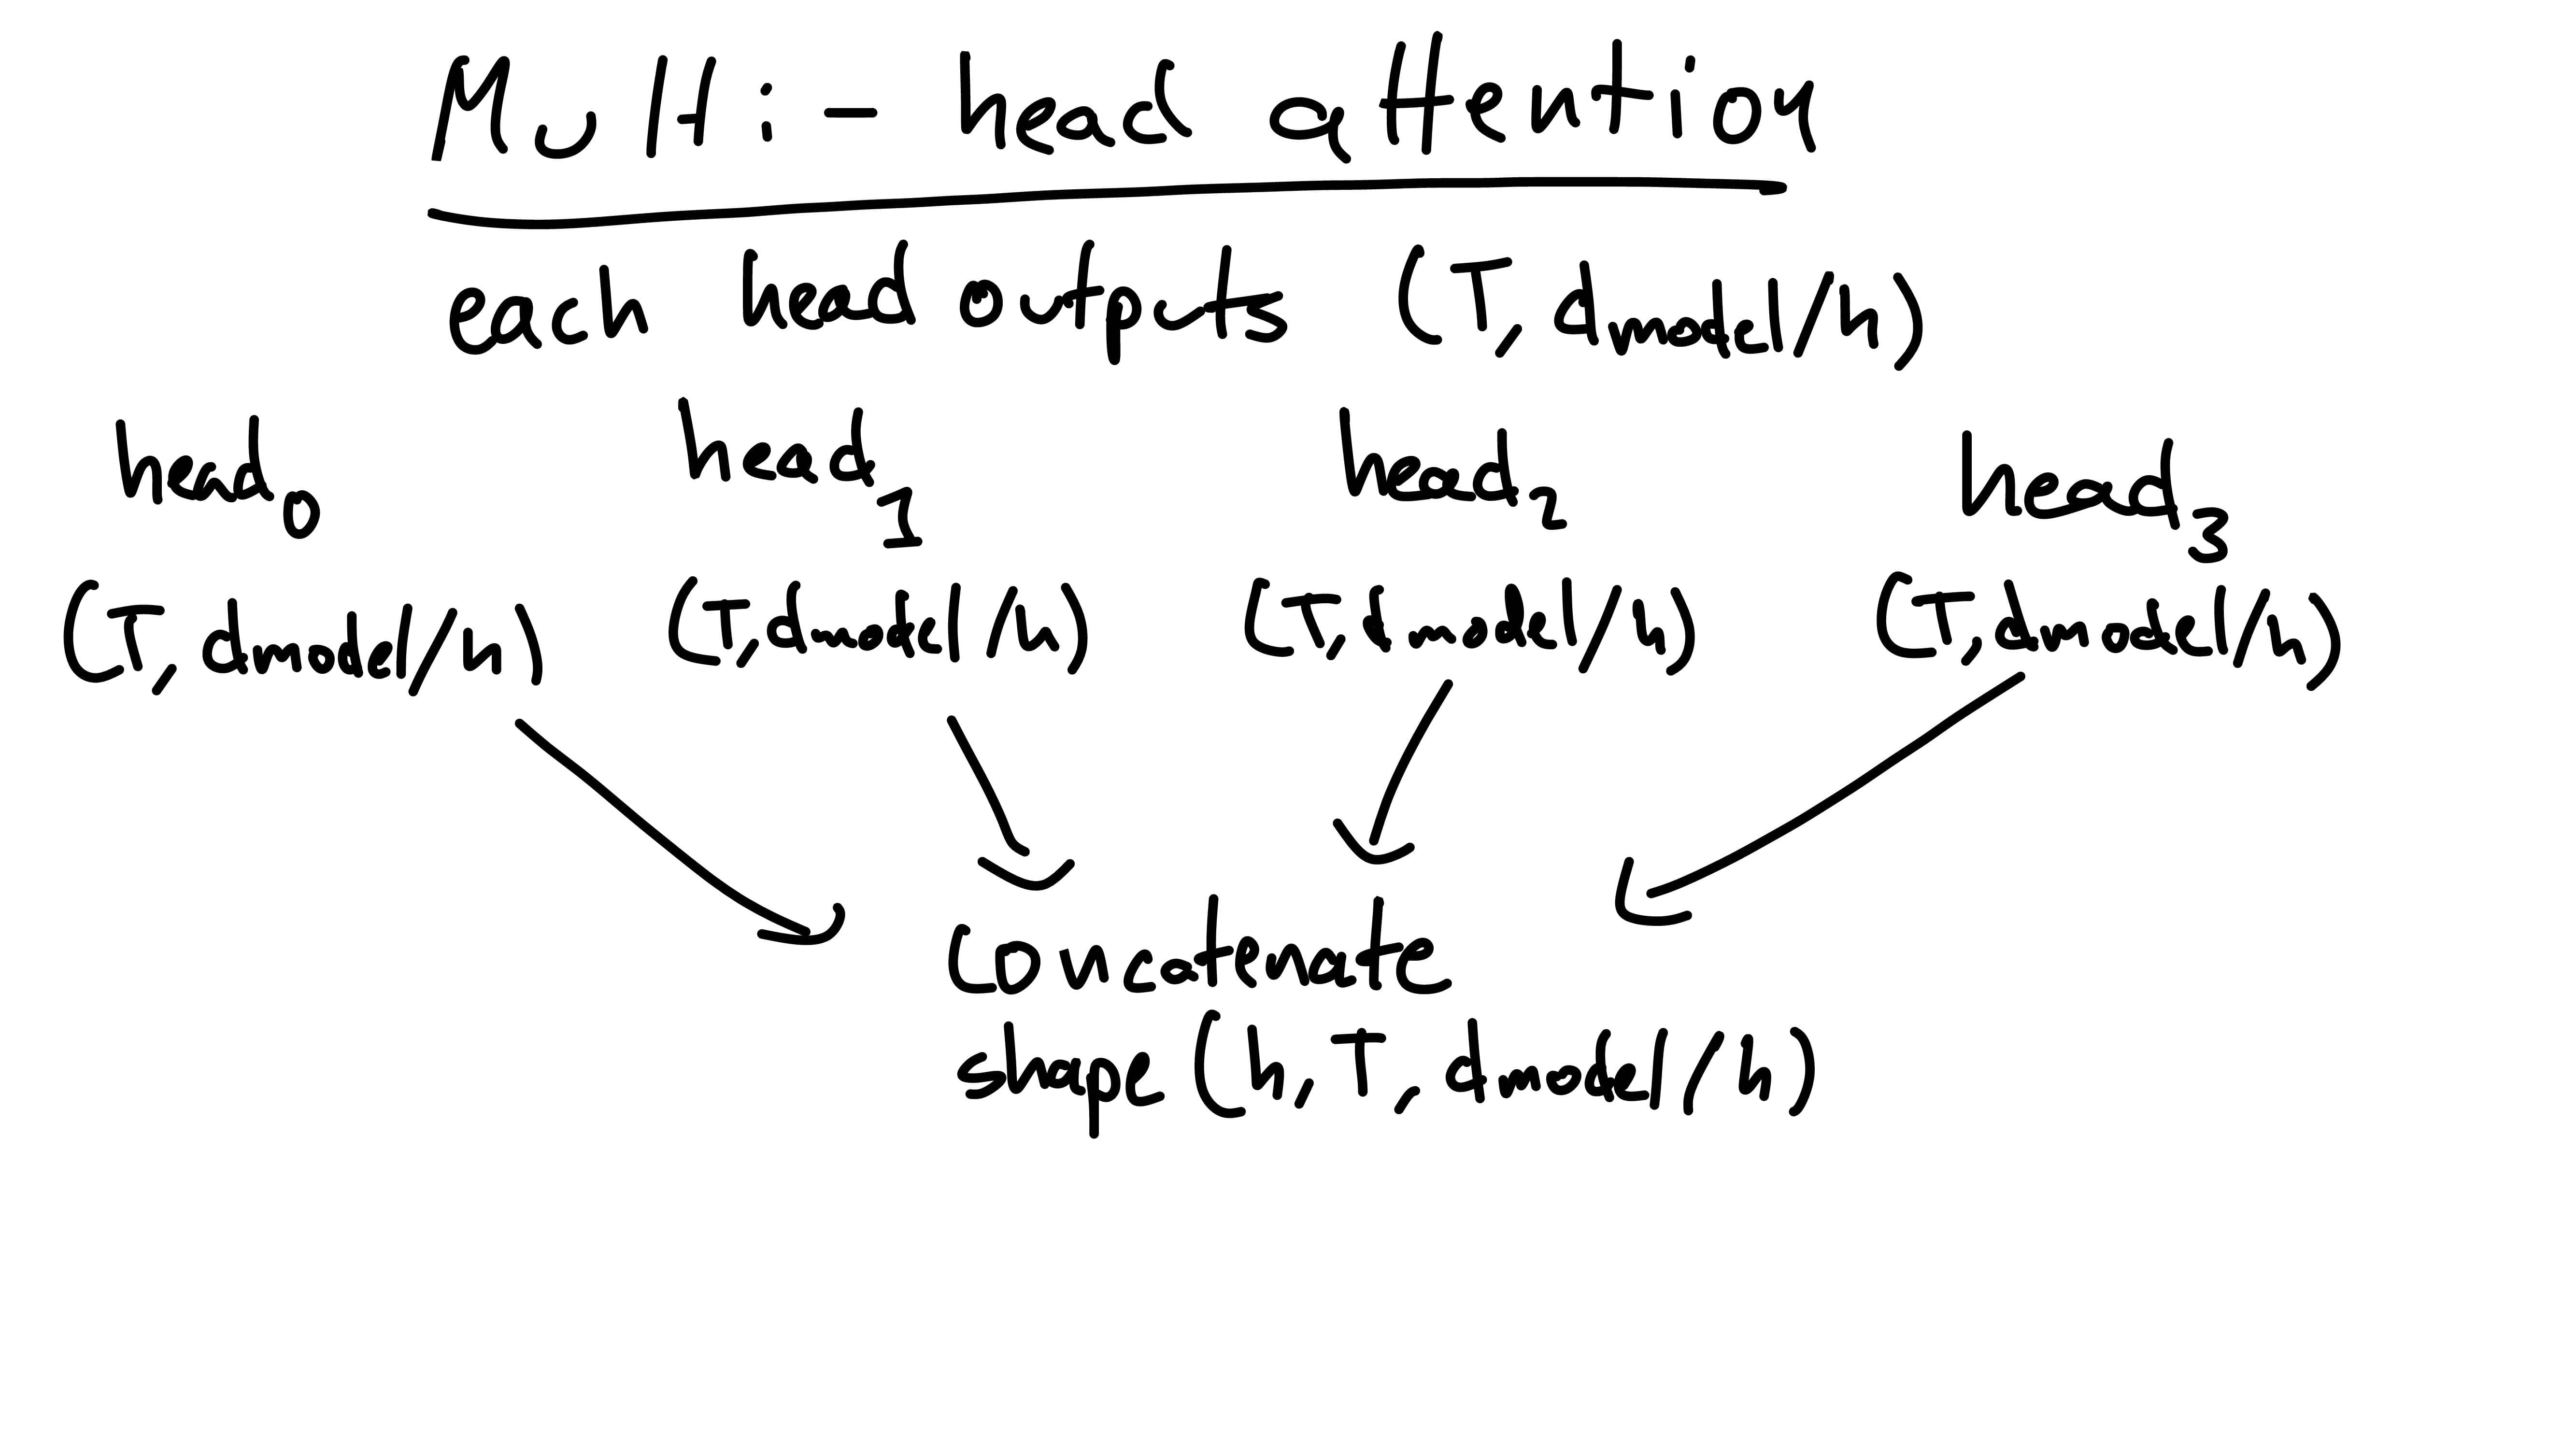 Multi-head attention
each head outputs (T, dmodel/h)
head0 head1 head2 head3
(T, dmodel/h) (T, dmodel/h) (T, dmodel/h) (T, dmodel/h)
concatenate
shape (h, T, dmodel/h)